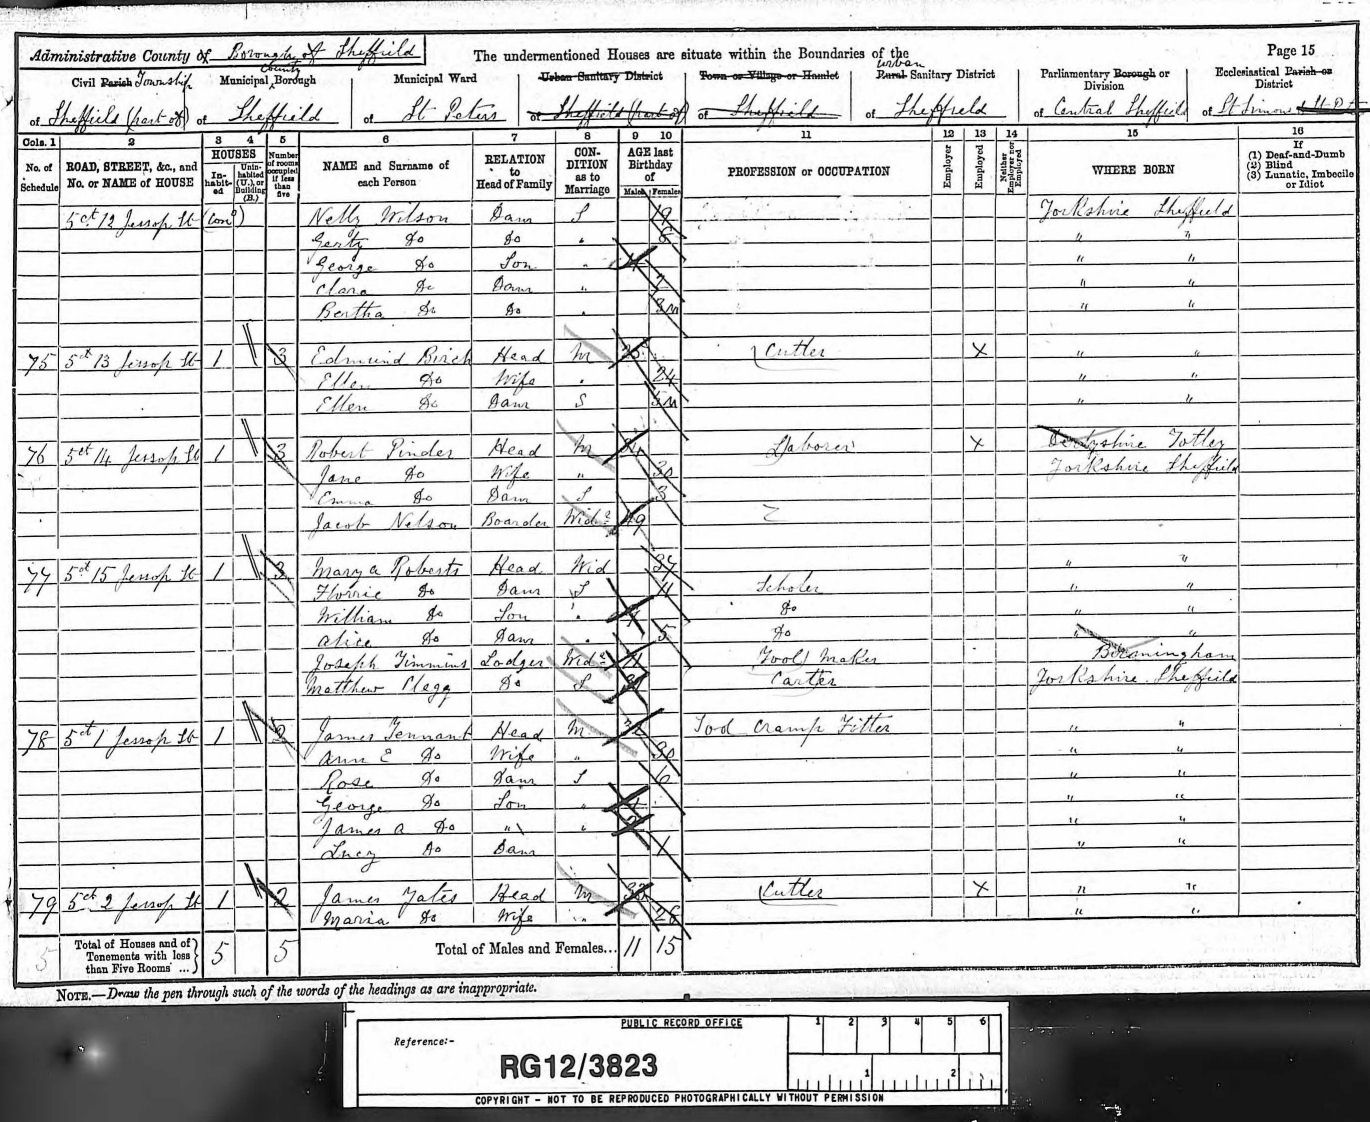 Administrative County of Borough of Sheffield The undermentioned Houses are situate within the Boundaries of the Page 15
Civil Parish Township of Sheffield (part of)
Municipal County Borough of Sheffield
Municipal Ward of St Peters
Urban Sanitary District of Sheffield (part of)
Town or Village or Hamlet of Sheffield
Urban Rural Sanitary District of Sheffield
Parliamentary Borough or Division of Central Sheffield
Ecclesiastical Parish or District of St Simons
Cols. 1 2 3 4 5 6 7 8 9 10 11 12 13 14 15 16
No. of Schedule
ROAD, STREET, &c., and No. or NAME of HOUSE
HOUSES
Inhabited
Uninhabited (U.), or Building (B.)
Number of rooms occupied if less than five
NAME and Surname of each Person
RELATION to Head of Family
CONDITION as to Marriage
AGE last Birthday of
Males Females
PROFESSION or OCCUPATION
Employer
Employed
Neither Employer nor Employed
WHERE BORN
If
(1) Deaf-and-Dumb
(2) Blind
(3) Lunatic, Imbecile or Idiot
5 ct 12 Jessop St (Cond) Nelly Wilson Daur S 19 Yorkshire Sheffield
Gerty Do Do " 8 " "
George Do Son " " "
Clara Do Daur " 7 " "
Bertha Do Do " 3m " "
75 5 ct 13 Jessop St 1 3 Edmund Birch Head M Cutler X " "
Ellen Do Wife " 24 " "
Ellen Do Daur S 5m " "
76 5 ct 14 Jessop St 1 3 Robert Pinder Head M Laborer X Derbyshire Totley
Jane Do Wife " 30 Yorkshire Sheffield
Emma Do Daur S 3
Jacob Nelson Boarder Widr 49
77 5 ct 15 Jessop St 1 3 Mary A Roberts Head Wid 37 " "
Florrie Do Daur S 11 Scholer " "
William Do Son " 7 Do " "
Alice Do Daur " 5 Do " "
Joseph Timmins Lodger Widr Tool Maker Birmingham
Matthew Clegg Do S Carter Yorkshire Sheffield
78 5 ct 1 Jessop St 1 2 James Tennant Head M Tool Cramp Fitter " "
Ann E Do Wife " 30 " "
Rose Do Daur S 6 " "
George Do Son " 4 " "
James A Do " " 2 " "
Lucy Do Daur 1 " "
79 5 ct 2 Jessop St 1 2 James Yates Head M 33 Cutler X " "
Maria Do Wife " 26 " "
5 Total of Houses and of Tenements with less than Five Rooms ... 5 5 Total of Males and Females... 11 15
NOTE.—Draw the pen through such of the words of the headings as are inappropriate.
PUBLIC RECORD OFFICE 1 2 3 4 5 6
Reference:-
RG12/3823 1 2
COPYRIGHT - NOT TO BE REPRODUCED PHOTOGRAPHICALLY WITHOUT PERMISSION